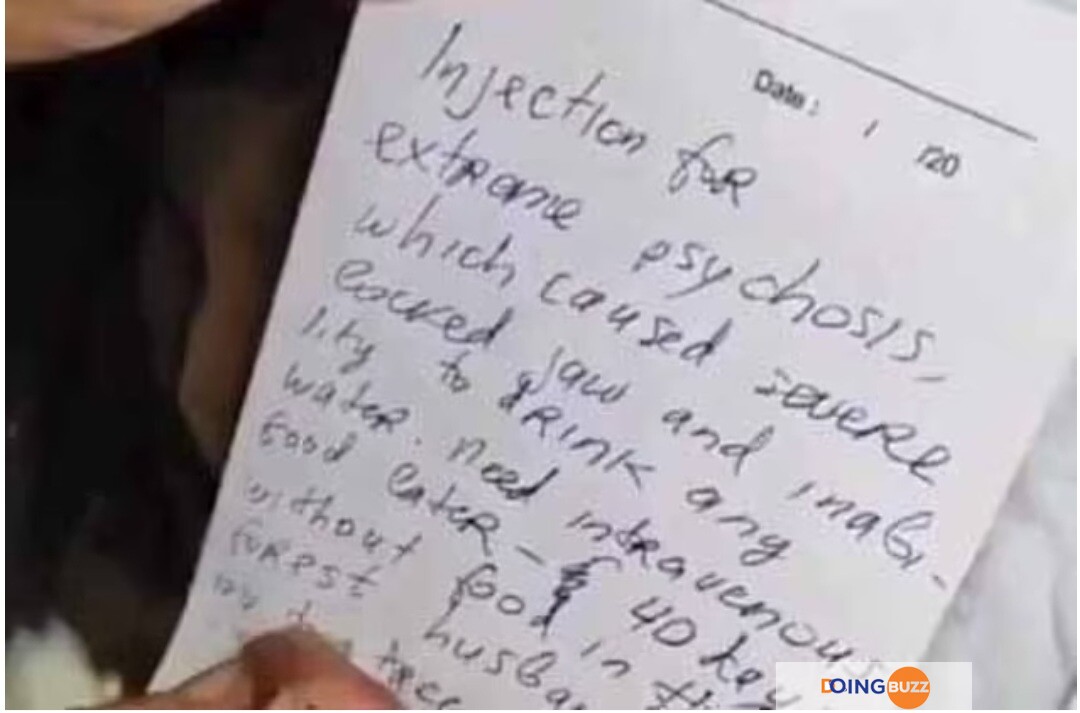 Date: / /20
Injection for
extreme psychosis,
which caused severe
locked jaw and inabi-
lity to drink any
water. need intravenous
food later - 40 day
without food in the
forest husba
tree
DOINGBUZZ